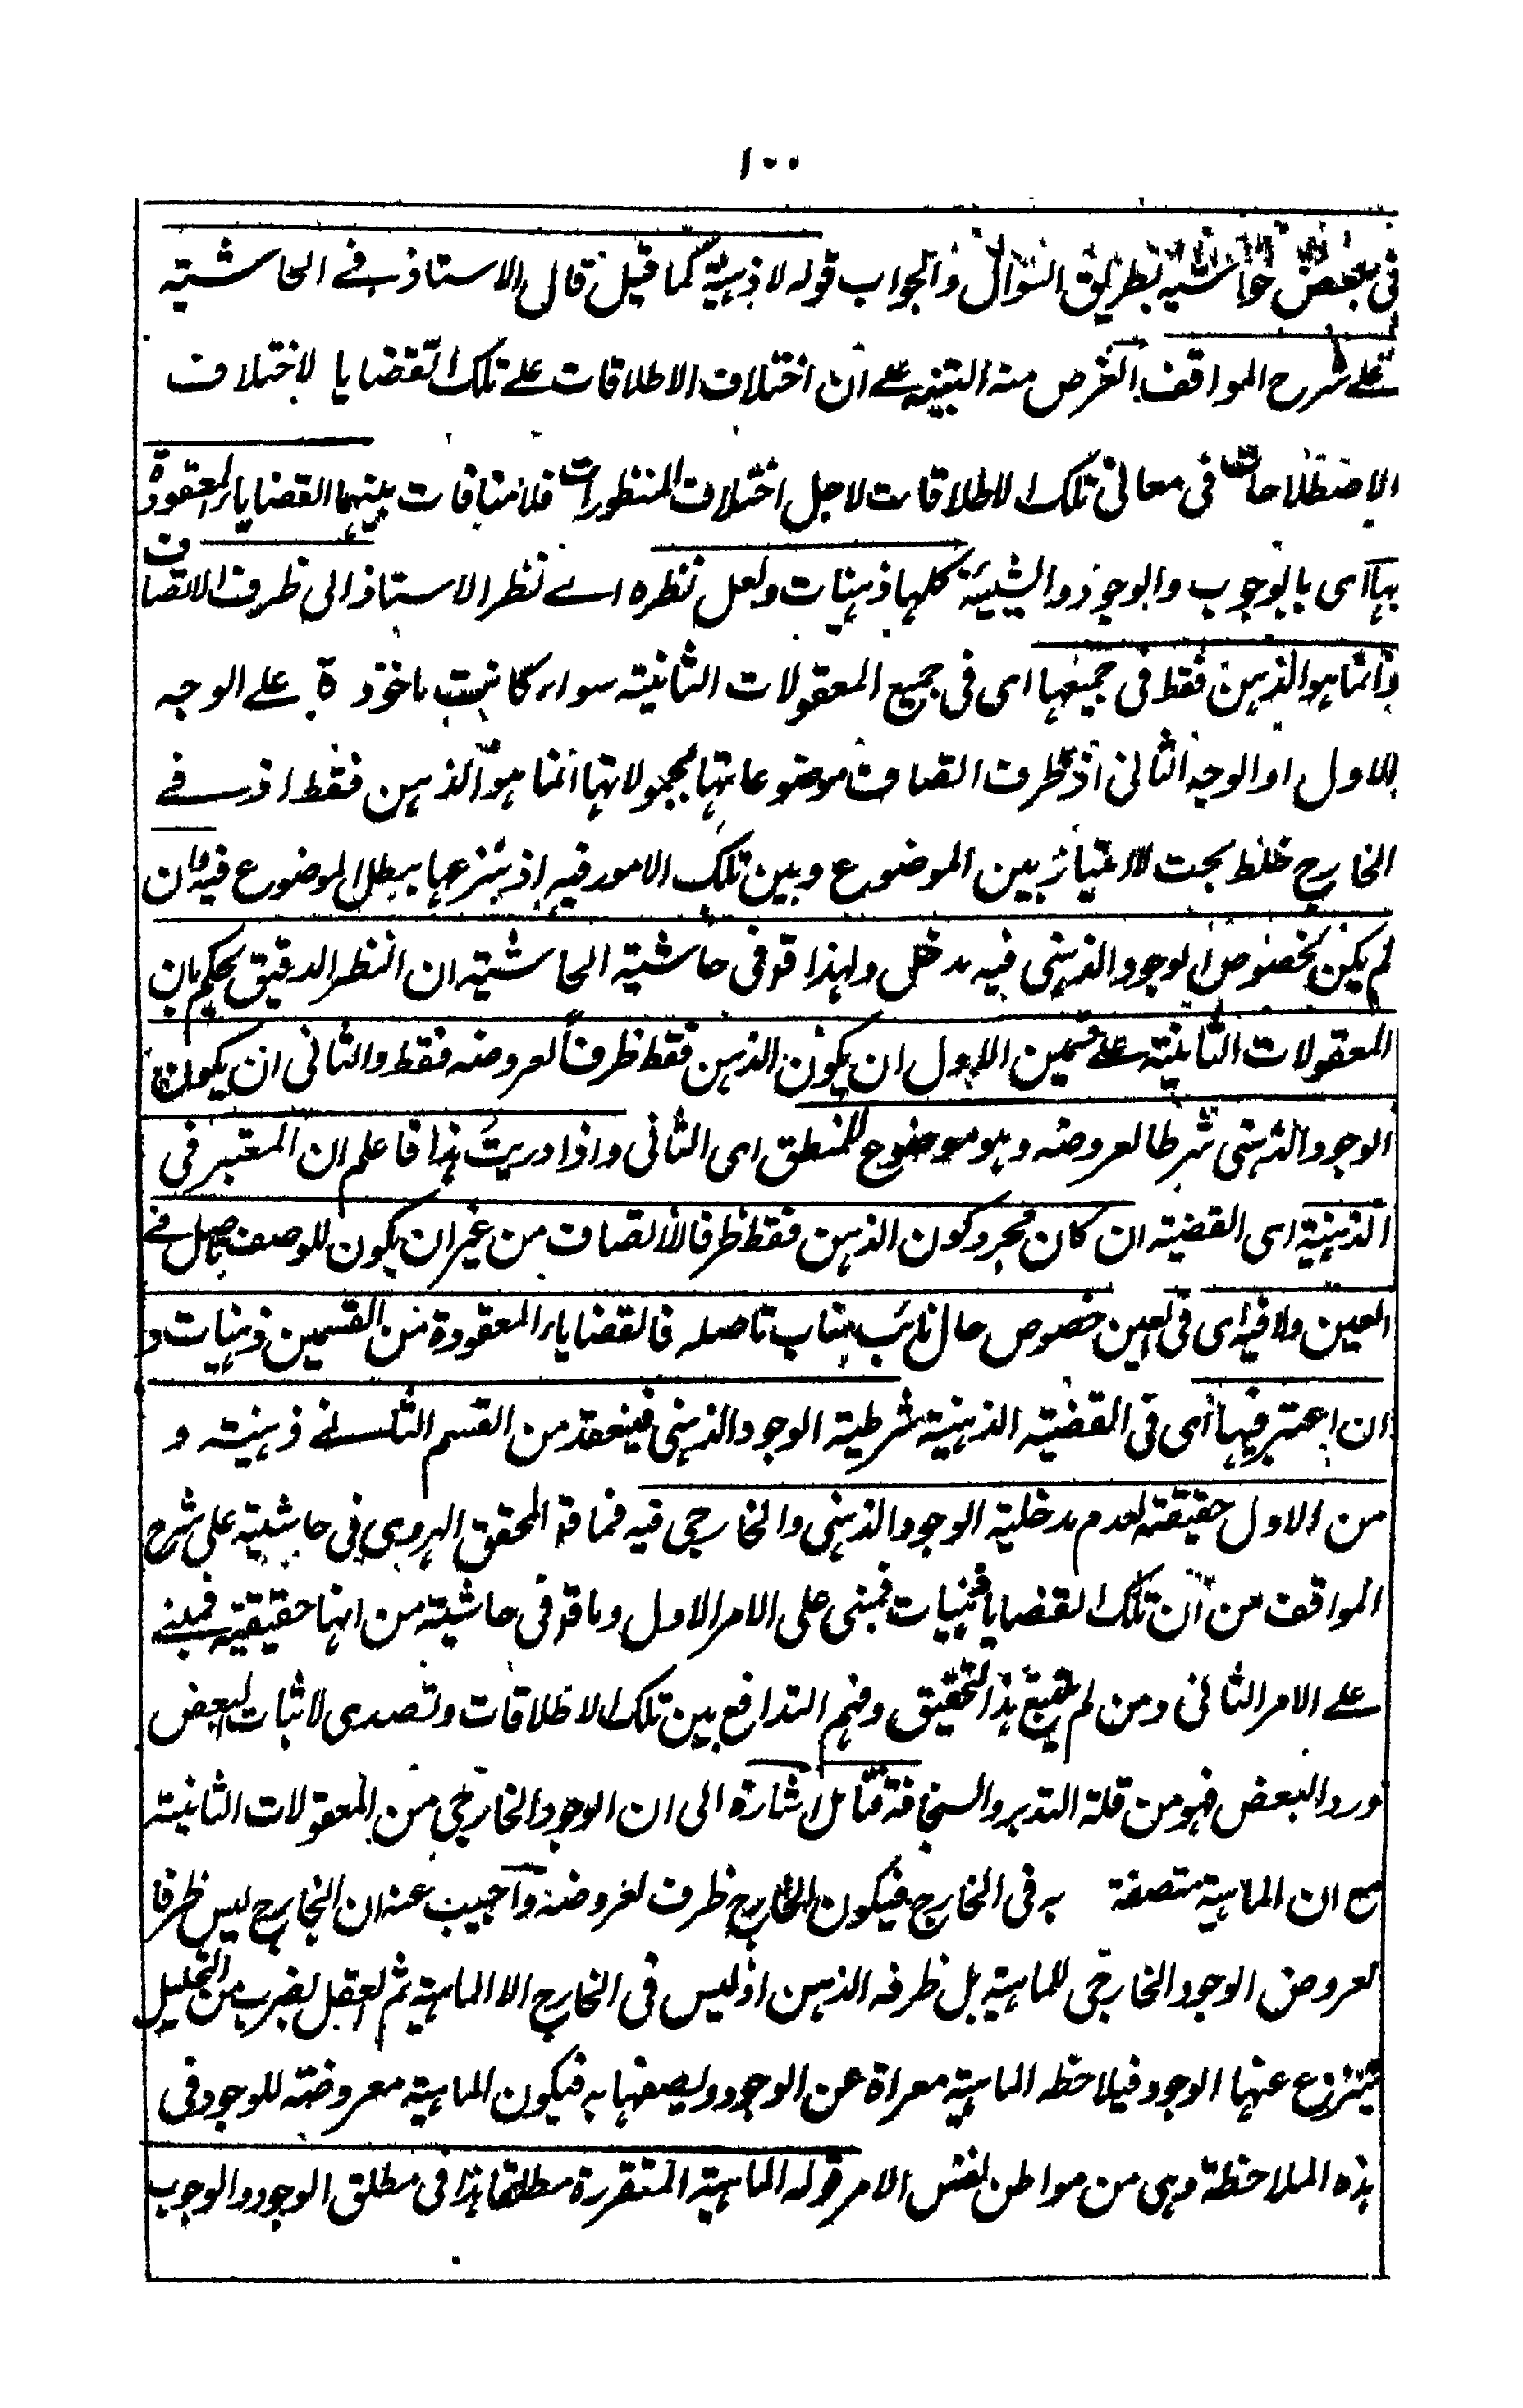 ١٠٠
فی بعض حواشیه بطریق السوال والجواب قوله لا ذهنیة کما قیل قال الاستاذ فے الحاشیته
علے شرح المواقف الغرض منه التنبیه علے ان اختلاف الاطلاقات علے تلک القضایا لاختلاف
الاصطلاحات فی معانی تلک الاطلاقات لاجل اختلاف المنظورات فلا منافات بینهما القضایا المعقودة
بها ای بالوجوب والوجود والشیئیة کلها ذهنیات ولعل نظره اے نظر الاستاذ الی ظرف الاتصاف
وانما هو الذهن فقط فی جمیعها ای فی جمیع المعقولات الثانیته سواء کانت ماخوذة علے الوجه
الاول او الوجه الثانی اذ ظرف اتصاف موضوعاتها بمحمولاتها انما هو الذهن فقط اذ فے
الخارج خلط بحت لا امتیاز بین الموضوع وبین تلک الامور فیه اذ منزعها مبطل الموضوع فیه وان
لم یکن لخصوص الوجود الذهنی فیه مدخل ولهذا قو فی حاشیته الحاشیته ان النظر الدقیق یحکم بان
المعقولات الثانیته علے قسمین الاول ان یکون الذهن فقط ظرفاً لعروضه فقط والثانی ان یکون
الوجود الذهنی شرطا لعروضه وهو موضوع للمنطق ای الثانی واذا دریت هذا فاعلم ان المعتبر فی
الذهنیة ای القضیته ان کان مجرد کون الذهن فقط ظرفا لالاتصاف من غیر ان یکون للوصف تاصل فے
العین ولا فیه ای فی العین خصوص حال نائب مناب تاصله فالقضایا المعقودة من القسمین ذهنیات و
ان اعتبر فیها ای فی القضیته الذهنیة شرطیة الوجود الذهنی فینعقد من القسم الثانے ذهنیته و
من الاول حقیقته لعدم مدخلیة الوجود الذهنی والخارجی فیه فما قو المحقق الهروی فی حاشیته علی شرح
المواقف من ان تلک القضایا ذهنیات فمبنی علی الامر الاول وما قو فی حاشیته من انها حقیقیة فمبنے
علے الامر الثانی ومن لم یتبع هذا التحقیق وفهم التدافع بین تلک الاطلاقات وتصدی لاثبات البعض
ورد البعض فهو من قلة التدبر والسخافة فتامل اشارة الی ان الوجود الخارجی من المعقولات الثانیته
مع ان الماهیة متصفة به فی الخارج فیکون الخارج ظرف لعروضه واجیب عنه ان الخارج لیس ظرفا
لعروض الوجود الخارجی للماهیة بل ظرفه الذهن اذ لیس فی الخارج الا الماهیة ثم العقل بضرب من التحلیل
ینتزع عنها الوجود فیلاحظه الماهیة معراة عن الوجود ویصفها به فیکون الماهیة معروضته للوجود فی
هذه الملاحظة وهی من مواطن نفس الامر قوله الماهیة المتقررة مطلقا هذا فی مطلق الوجود والوجوب